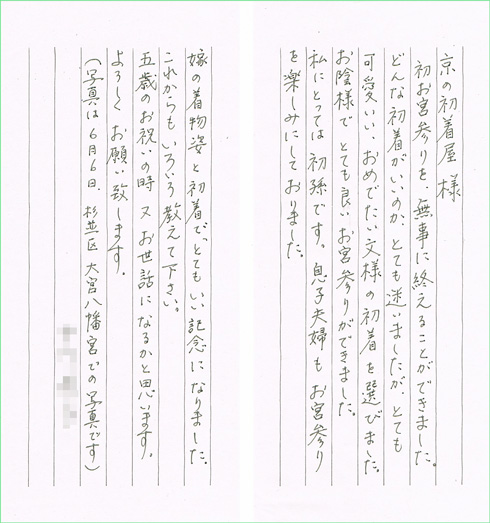 京の初着屋 様
初お宮参りを、無事に終えることができました。
どんな初着がいいのか、とても迷いましたが、とても
可愛いい、おめでたい文様の初着を選びました。
お陰様で とても良いお宮参りができました。
私にとっては 初孫です。息子夫婦も お宮参り
を楽しみにしておりました。
嫁の着物姿と初着で、とてもいい記念になりました。
これからも いろいろ教えて下さい。
五歳のお祝いの時 又 お世話になるかと思います。
よろしく お願い致します。
(写真は 6月6日、杉並区 大宮八幡宮での写真です)